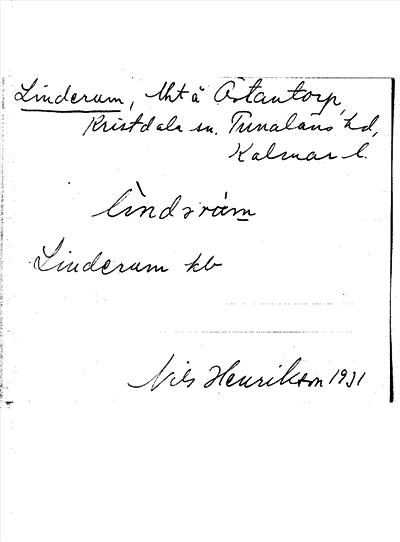 Linderum, lht å Östantorp,
Kristdala sn. Tunaläns hd,
Kalmar l.
lìndərám
Linderum kb
Nils Henrikson 1931